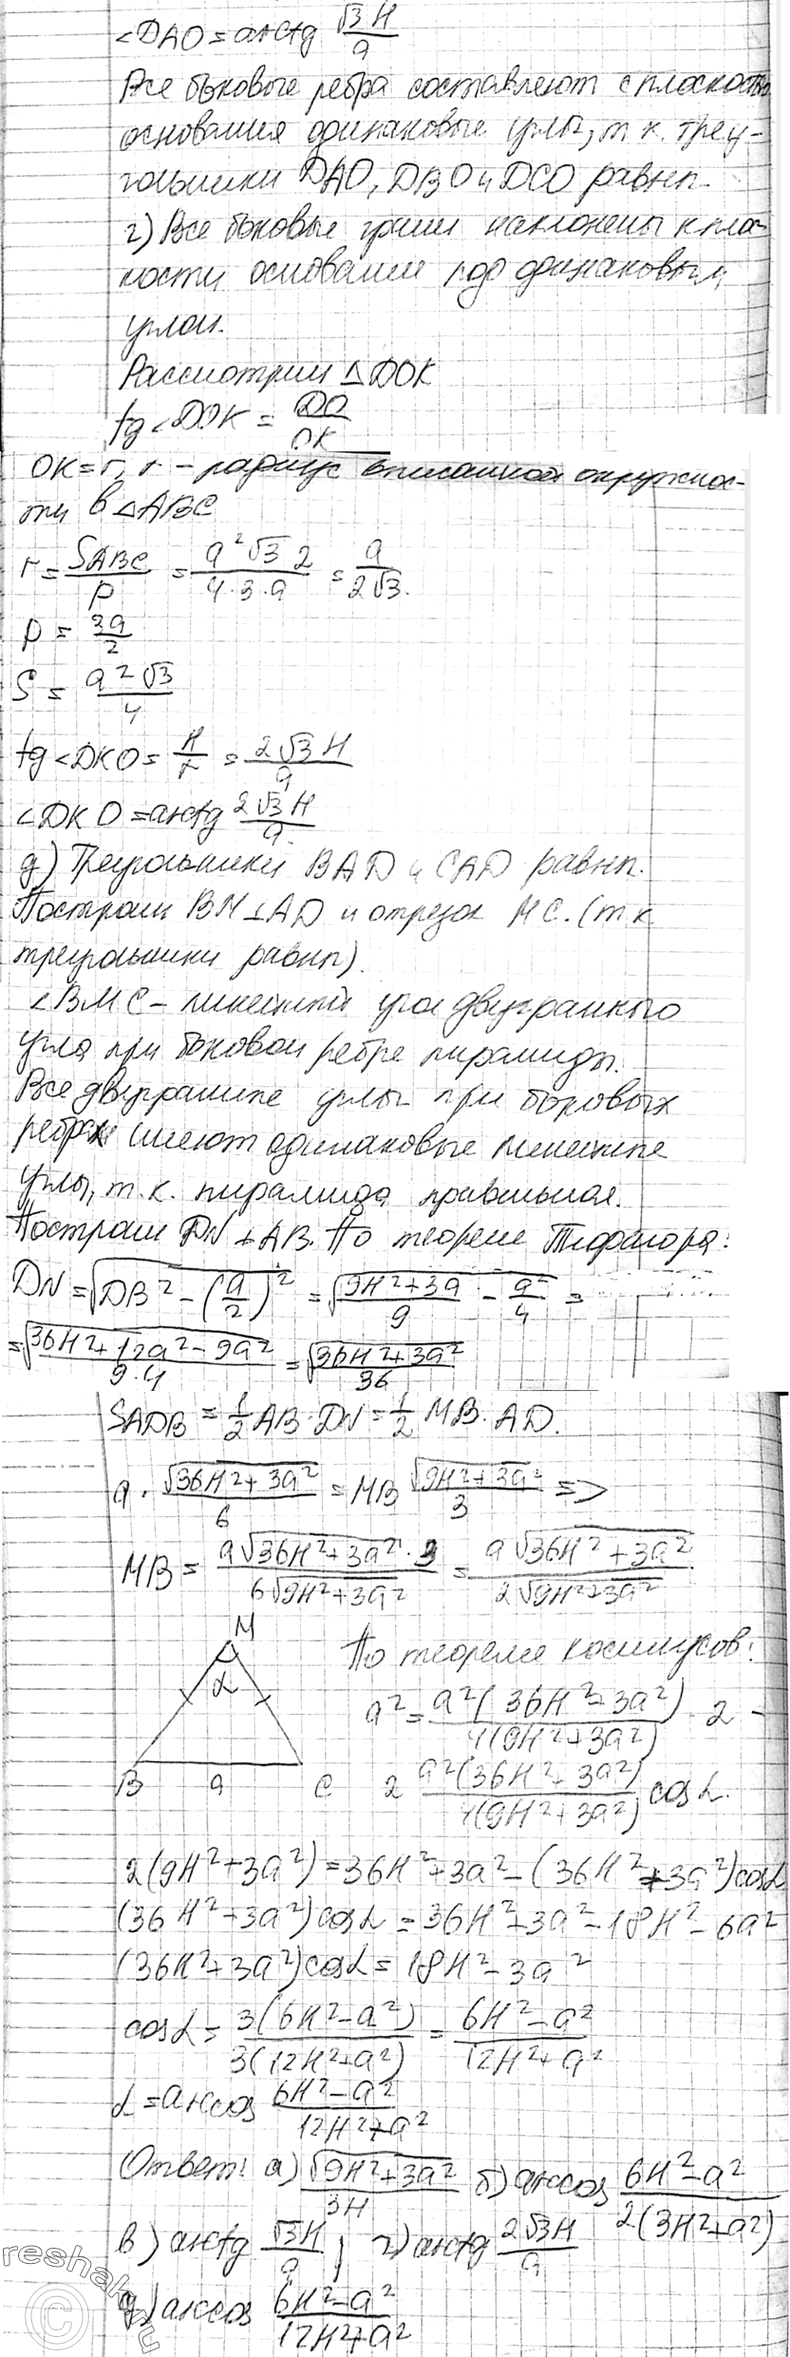 ∠DAO = arctg √3H/a
Все боковые ребра составляют с плоскостью
основания одинаковые углы, т.к. треу-
гольники DAO, DBO и DCO равны.
г) Все боковые грани наклонены к плос-
кости основания под одинаковым
углом.
Рассмотрим △DOK
tg∠DOK = DO/OK
OK = r, r - радиус вписанной окружнос-
ти в △ABC
r = SABC/p = a²√3 2/4·3·a = a/2√3.
p = 3a/2
S = a²√3/4
tg∠DKO = H/r = 2√3H/a
∠DKO = arctg 2√3H/a.
д) Треугольники BAD и CAD равны.
Построим BM⊥AD и отрезок MC. (т.к
треугольники равны).
∠BMC - линейный угол двугранного
угла при боковом ребре пирамиды.
Все двугранные углы при боковых
ребрах имеют одинаковые линейные
углы, т.к. пирамида правильная.
Построим DN⊥AB. По теореме Пифагора:
DN = √(DB² - (a/2)²) = √((9H²+3a)/9 - a²/4) =
= √((36H²+12a²-9a²)/9·4) = √((36H²+3a²)/36)
SADB = 1/2 AB·DN = 1/2 MB·AD.
a · √(36H²+3a²)/6 = MB √(9H²+3a²)/3 =>
MB = a√(36H²+3a²)·3/6√(9H²+3a²) = a√(36H²+3a²)/2√(9H²+3a²)
M
α
B a C
По теореме косинусов:
a² = a²(36H²+3a²)/4(9H²+3a²) · 2 -
2 a²(36H²+3a²)/4(9H²+3a²) cosα.
2(9H²+3a²) = 36H²+3a² - (36H²+3a²)cosα
(36H²+3a²)cosα = 36H²+3a²-18H²-6a²
(36H²+3a²)cosα = 18H²-3a²
cosα = 3(6H²-a²)/3(12H²+a²) = 6H²-a²/12H²+a²
α = arccos 6H²-a²/12H²+a²
Ответ: а) √(9H²+3a²)/3H б) arccos 6H²-a²/2(3H²+a²)
в) arctg √3H/a; г) arctg 2√3H/a
д) arccos 6H²-a²/12H²+a²
reshak.ru
©